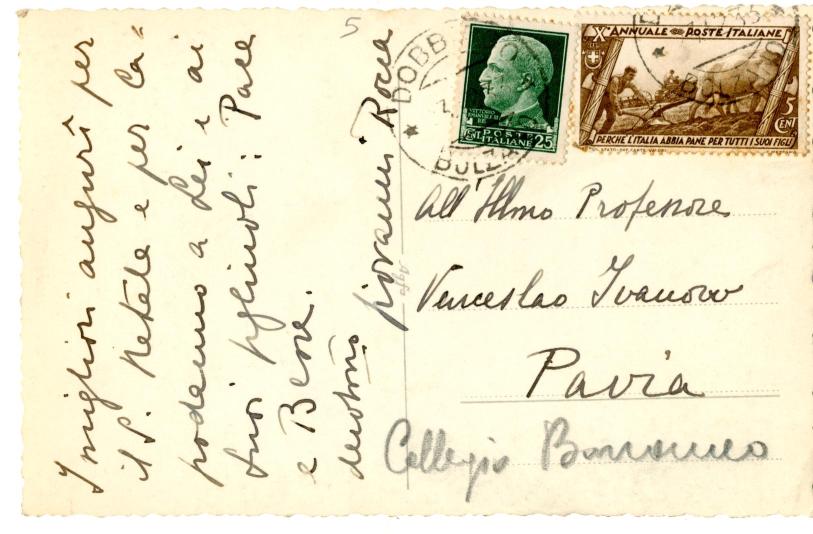 I migliori auguri per
il S. Natale e per Ca=
podanno a Lei e ai
Suoi figliuoli: Pace
e Bene.
devotmo Giovanni Rocca
5
DOBB
BOLZ
VITTORIO
EMANUELE III
RE
POSTE
ITALIANE
CENT. 25
X° ANNUALE POSTE ITALIANE
5
CENT
PERCHÉ L'ITALIA ABBIA PANE PER TUTTI I SUOI FIGLI
BOLZANO
All' Illmo Professore
Venceslao Ivanow
Pavia
Collegio Borromeo